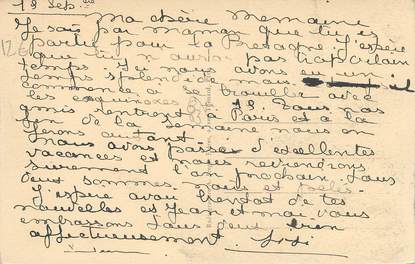 18 Sep.bre
Ma chère Memaine
Je sais par maman que tu es
partie pour la Bretagne. J'espère
que tu n'auras pas trop vilain
temps. Ici nous avons eu un
temps splendide mais il
commence à se brouiller avec
les equinoxes. Tous ces
amis rentrent à Paris et à la
fin de la semaine nous en
ferons autant.
Nous avons passé d'excellentes
vacances et nous reviendrons
surement l'an prochain. Tous
deux sommes noirs et
J'espère avoir bientot de tes
nouvelles et Jean et moi vous
embrassons tous deux bien
affectueusement